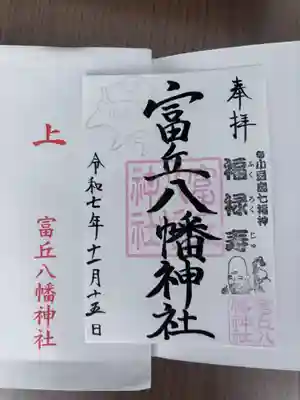 奉拝
小豆島七福神
福禄寿
ふくろくじゅ
富丘八幡神社
令和七年十一月十五日
上
富丘八幡神社